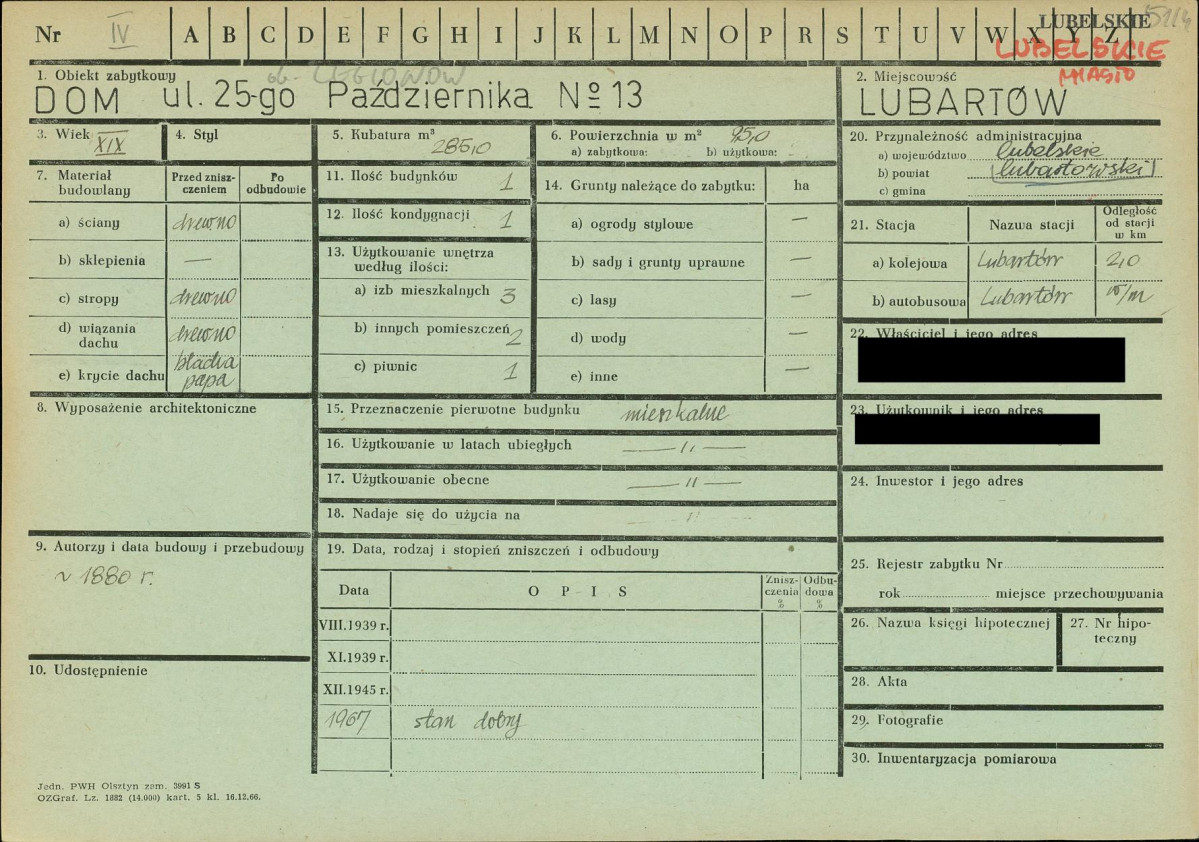 Nr IV A B C D E F G H I J K L M N O P R S T U V W X Y Z
LUBELSKIE
LUBELSKIE
MIASTO
1. Obiekt zabytkowy
ob. LEGIONÓW
DOM ul. 25-go Października № 13
2. Miejscowość
LUBARTÓW
3. Wiek XIX
4. Styl
5. Kubatura m³ 285,0
6. Powierzchnia w m² 95,0
a) zabytkowa: b) użytkowa:
7. Materiał budowlany
Przed zniszczeniem
Po odbudowie
a) ściany drewno
b) sklepienia —
c) stropy drewno
d) wiązania dachu drewno
e) krycie dachu blacha papa
11. Ilość budynków 1
12. Ilość kondygnacji 1
13. Użytkowanie wnętrza
według ilości:
a) izb mieszkalnych 3
b) innych pomieszczeń 2
c) piwnic 1
14. Grunty należące do zabytku: ha
a) ogrody stylowe —
b) sady i grunty uprawne —
c) lasy —
d) wody —
e) inne —
20. Przynależność administracyjna
a) województwo lubelskie
b) powiat lubartowski
c) gmina
21. Stacja Nazwa stacji Odległość od stacji w km
a) kolejowa Lubartów 2,0
b) autobusowa Lubartów w/m
22. Właściciel i jego adres
23. Użytkownik i jego adres
8. Wyposażenie architektoniczne
15. Przeznaczenie pierwotne budynku mieszkalne
16. Użytkowanie w latach ubiegłych — 〃 —
17. Użytkowanie obecne — 〃 —
18. Nadaje się do użycia na — 〃 —
24. Inwestor i jego adres
9. Autorzy i data budowy i przebudowy
~ 1880 r.
19. Data, rodzaj i stopień zniszczeń i odbudowy
Data OPIS Zniszczenia % Odbudowa %
VIII.1939 r.
XI.1939 r.
XII.1945 r.
1967 stan dobry
10. Udostępnienie
25. Rejestr zabytku Nr
rok miejsce przechowywania
26. Nazwa księgi hipotecznej
27. Nr hipoteczny
28. Akta
29. Fotografie
30. Inwentaryzacja pomiarowa
Jedn. PWH Olsztyn zam. 3991 S
OZGraf. Lz. 1882 (14.000) kart. 5 kl. 16.12.66.